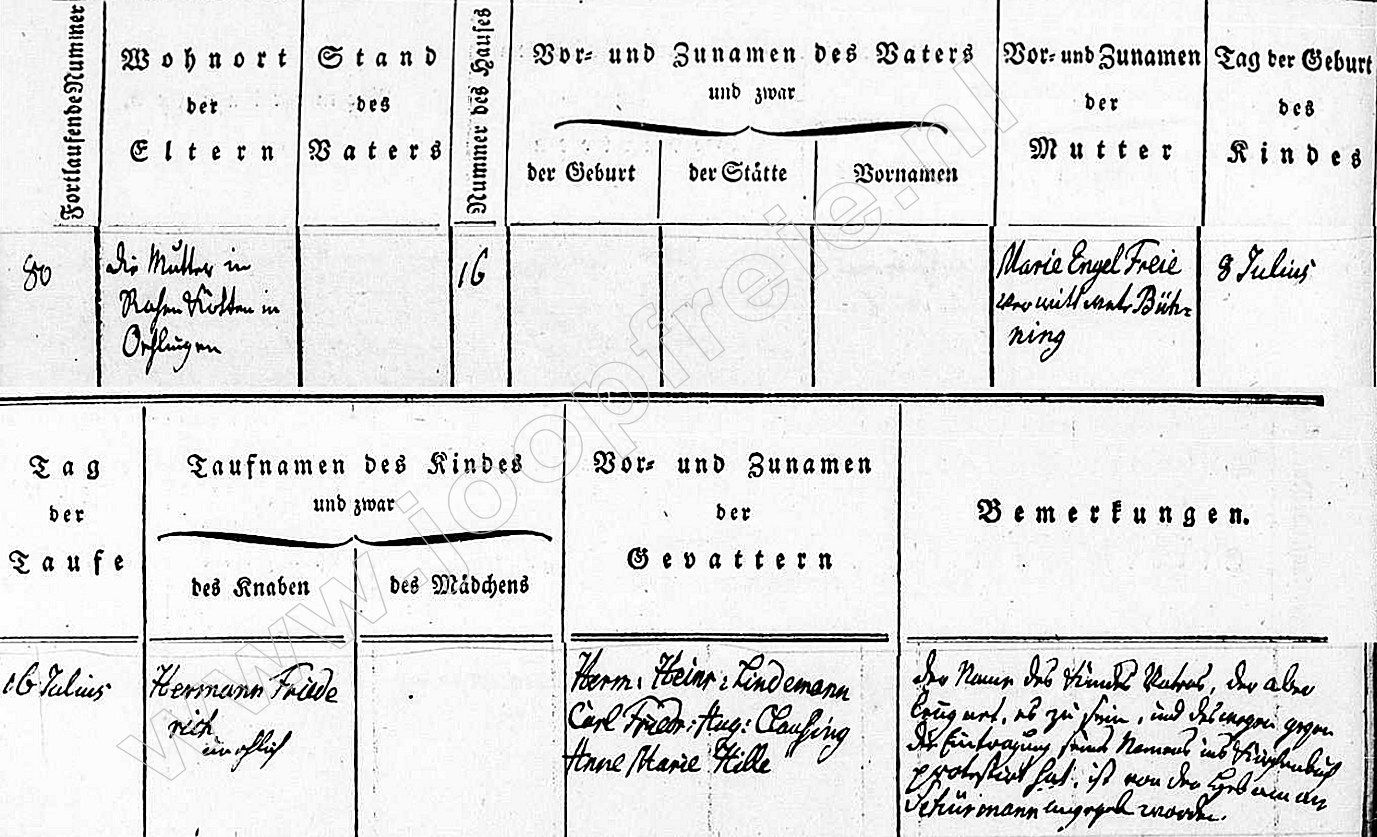 Fortlaufende Nummer
Wohnort
der
Eltern
Stand
des
Vaters
Nummer des Hauses
Vor- und Zunamen des Vaters
und zwar
der Geburt
der Stätte
Vornamen
Vor- und Zunamen
der
Mutter
Tag der Geburt
des
Kindes
80
die Mutter in
Kotten in
16
Marie Engel Freie
verwittwete Büh-
ning
8 Julius
Tag
der
Taufe
Taufnamen des Kindes
und zwar
des Knaben
des Mädchens
Vor- und Zunamen
der
Gevattern
Bemerkungen.
16 Julius
Hermann Friede
rich
unehlich
Herm: Heinr: Lindemann
Carl Friedr: Aug: Clausing
Anne Marie Hille
der Name des Kindes Vaters, der aber
leugnet, es zu sein, und deswegen gegen
die Eintragung seines Namens ins Kirchenbuch
protestirt hat, ist von der Hebamme
Schürmann angegeben worden.
www.joopfreie.nl